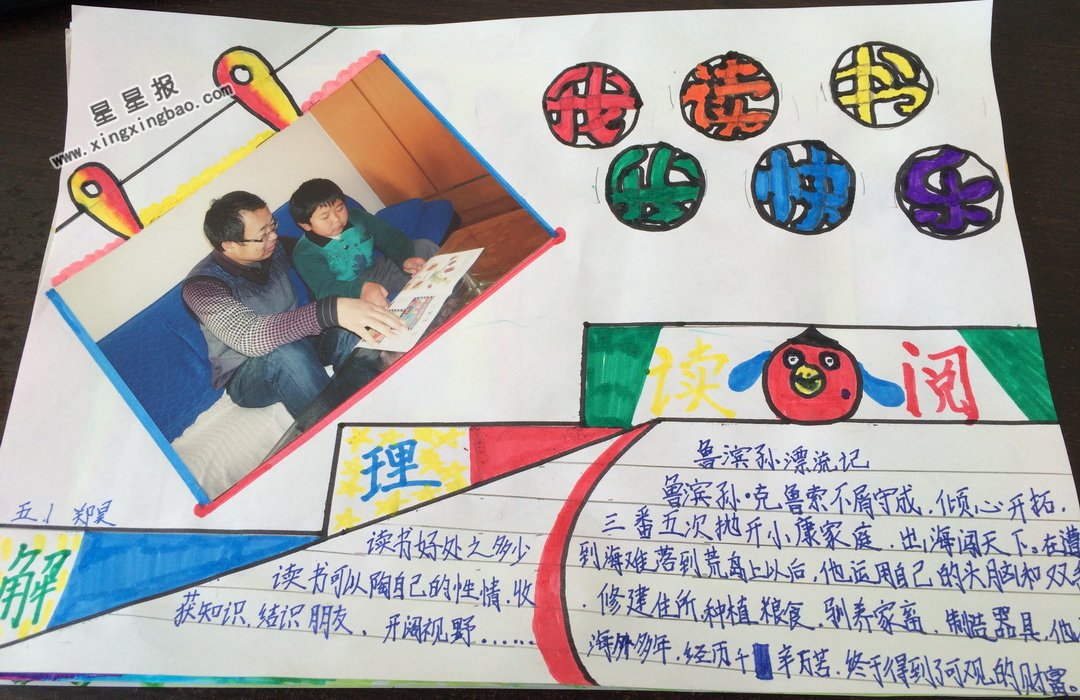 星星报
www.xingxingbao.com
我读书
我快乐
读 阅
理
解
五.1 郑昊
读书好处之多少
读书可以陶自己的性情、收
获知识、结识朋友、开阔视野……
鲁滨孙漂流记
鲁滨孙·克鲁索不屑守成，倾心开拓，
三番五次抛开小康家庭，出海闯天下。在遭
到海难落到荒岛上以后，他运用自己的头脑和双
、修建住所，种植粮食，驯养家畜，制造器具，他
海外多年，经历千辛万苦，终于得到了可观的财富。